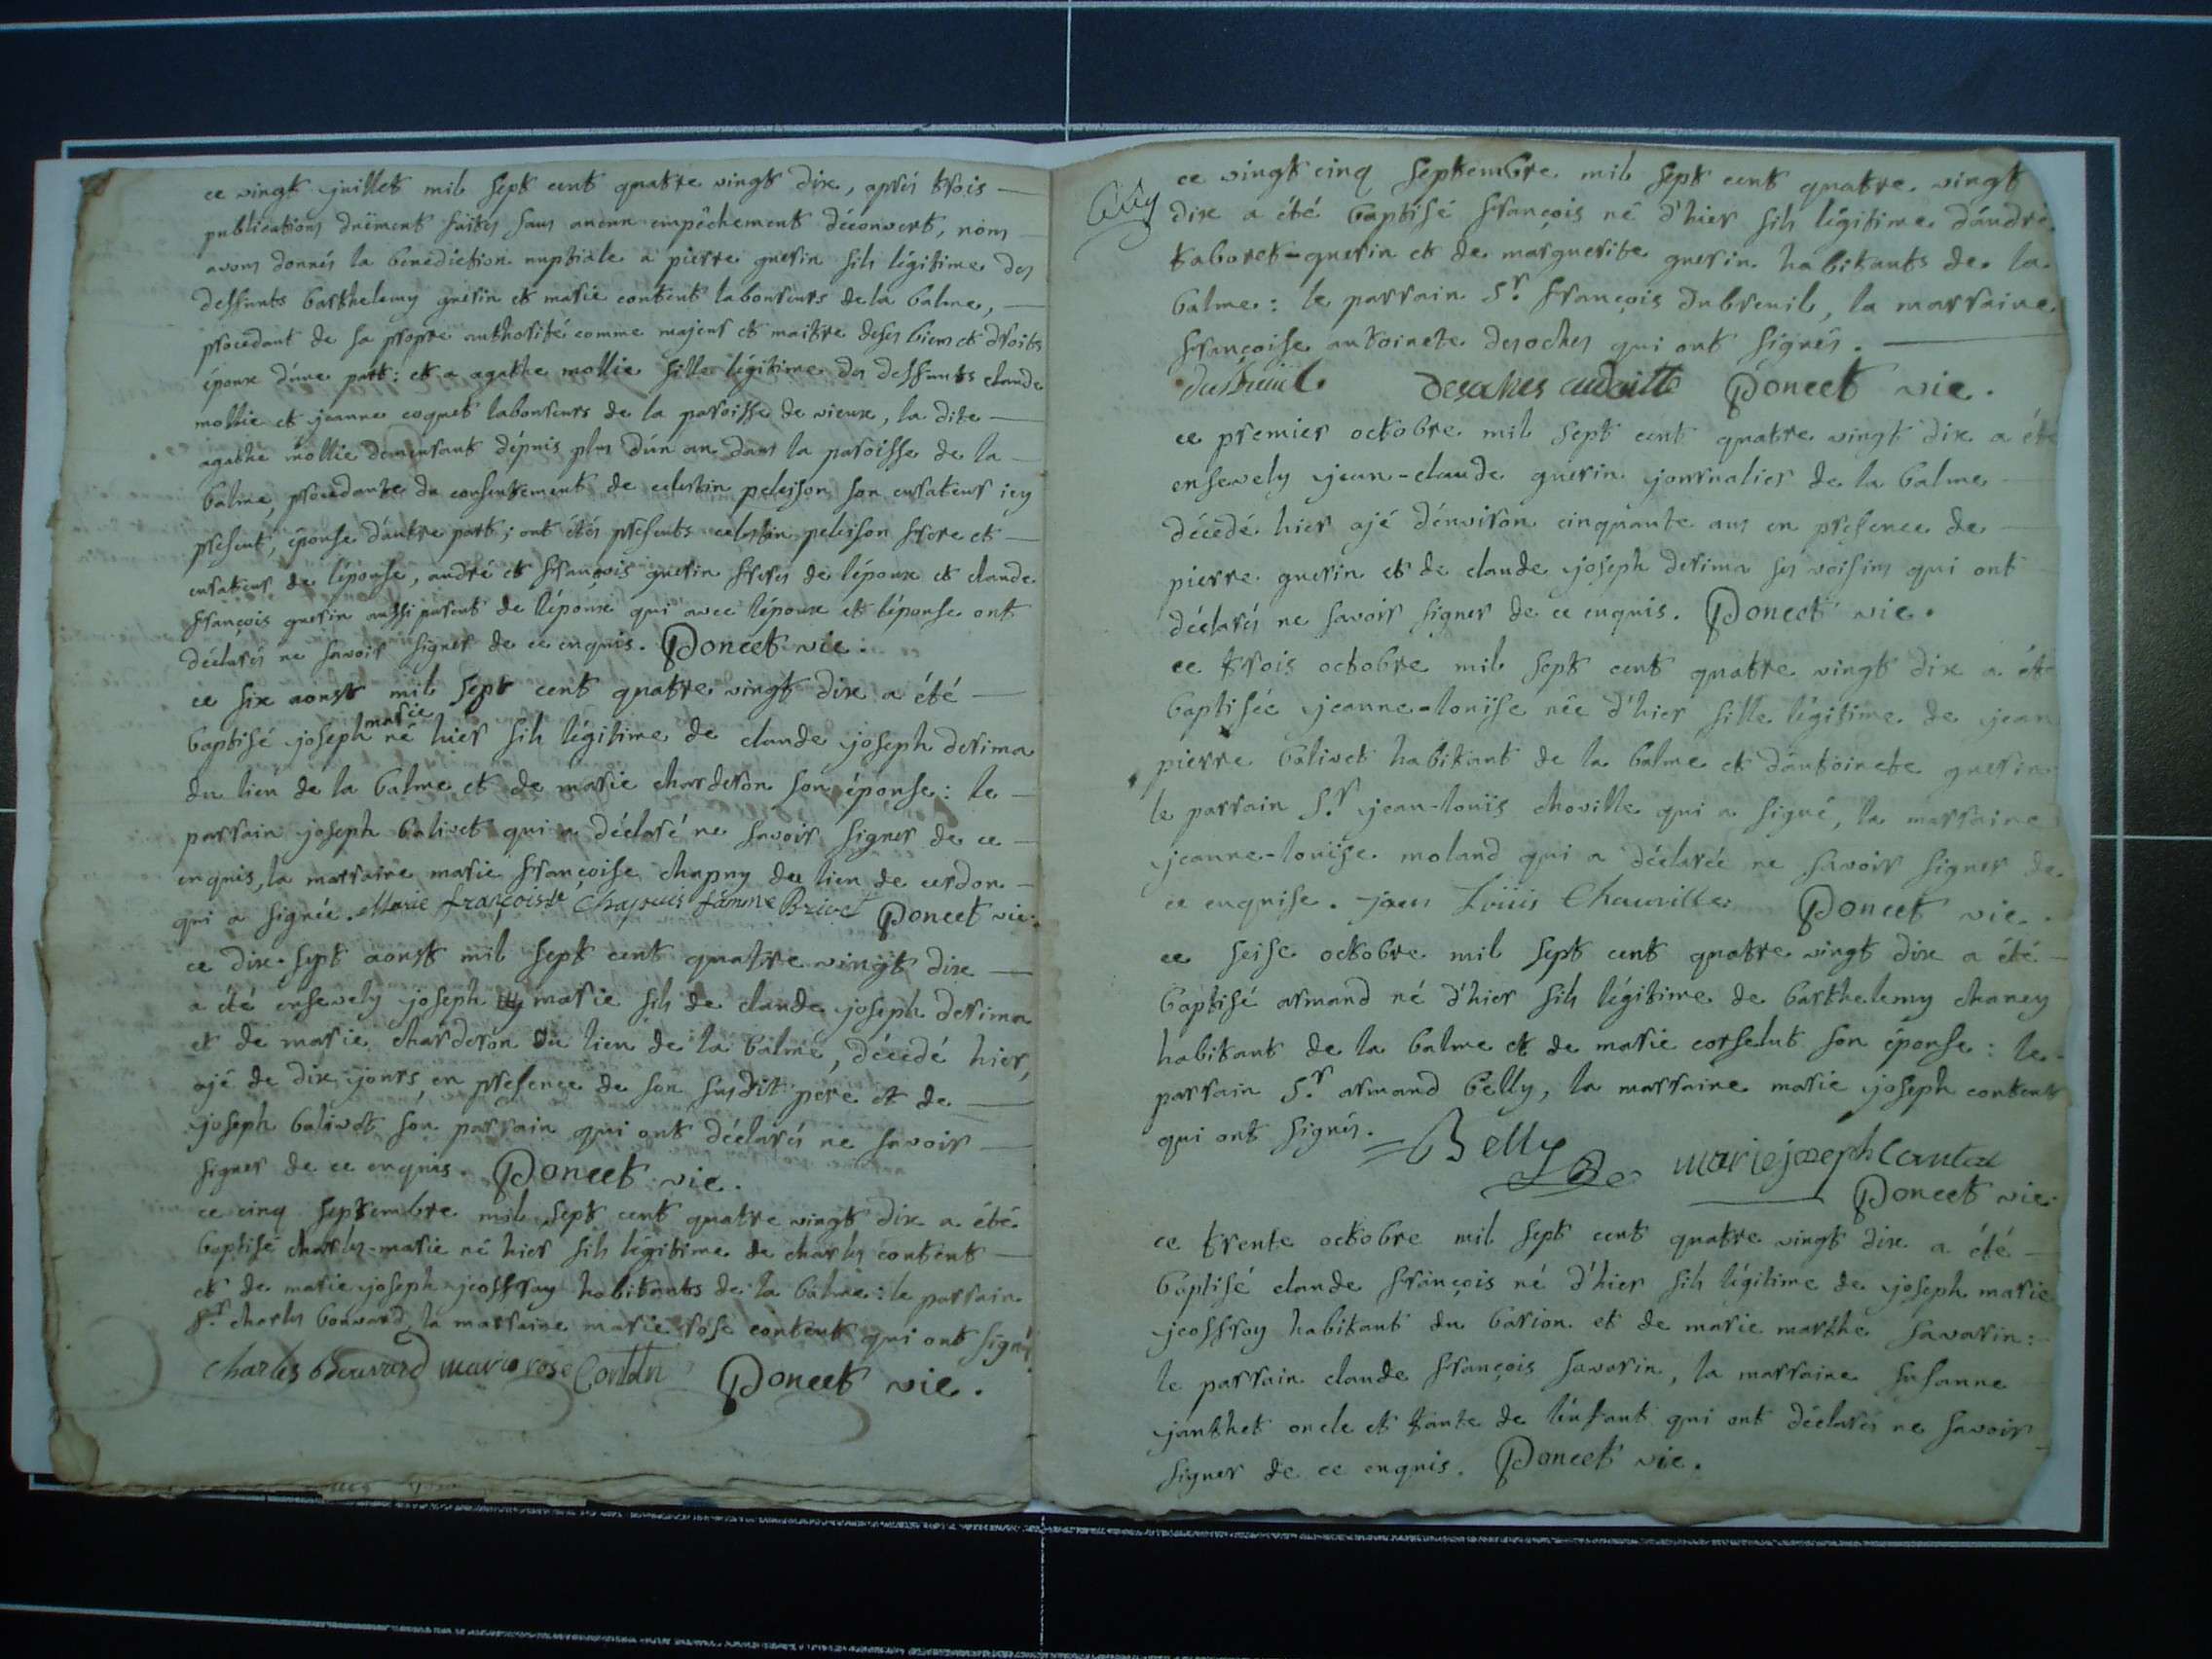 ce vingt juillet mil sept cent quatre vingt dix, aprés trois
publications duëment faites sans aucun empêchement découvert, nous
avons donnés la benediction nuptiale a pierre guerin fils légitime des
deffunts barthelemy guerin et marie content laboureurs de la balme,
procedant de sa propre authorité comme majeur et maitre deses biens et droits
époux d'une part: et a agathe mollie fille légitime des deffunts claude
mollie et jeanne coquet laboureurs de la paroisse de vieux, la dite
agathe mollie demeurant dépuis plus d'un an dans la paroisse de la
balme, procedante du consentement de celestin peleison son curateur icy
present, épouse d'autre part; ont étés presents celestin peleison frere et
curateur de l'épouse, andré et françois guerin freres de l'époux et claude
françois guerin aussi parent de l'époux qui avec l'époux et l'épouse ont
déclarés ne savoir signer de ce enquis. Poncet vic.
ce six aoust mil sept cent quatre vingt dix a été
baptisé joseph marie né hier fils légitime de claude joseph derima
du lieu de la balme et de marie charderon son épouse: le
parrain joseph balivet qui a déclaré ne savoir signer de ce
enquis, la marraine marie françoise chapuy du lieu de cerdon
qui a signée. Marie françoise Chapuis famme Brivet Poncet vic.
ce dix-sept aoust mil sept cent quatre vingt dix
a été ensevely joseph marie fils de claude joseph derima
et de marie charderon du lieu de la balme, décédé hier,
ajé de dix jours, en presence de son susdit pere et de
joseph balivet son parrain qui ont déclarés ne savoir
signer de ce enquis. Poncet vic.
ce cinq septembre mil sept cent quatre vingt dix a été
baptisé charles-marie né hier fils légitime de charles content
et de marie joseph jeoffray habitants de la balme: le parrain
Sr. charles bouvard, la marraine marie rose content qui ont signés
Charles Bouvard marie rose Contan Poncet vic.
ce vingt cinq septembre mil sept cent quatre vingt
dix a été baptisé françois né d'hier fils légitime d'andré
taboret-guerin et de marguerite guerin habitants de la
balme: le parrain Sr. françois dubreuil, la marraine
françoise antoinete desoches qui ont signés.
dubreuil desoches Poncet vic.
ce premier octobre mil sept cent quatre vingt dix a été
ensevely jean-claude guerin journalier de la balme
décedé hier ajé d'environ cinquante ans en presence de
pierre guerin et de claude joseph derima ses voisins qui ont
déclarés ne savoir signer de ce enquis. Poncet vic.
ce trois octobre mil sept cent quatre vingt dix a été
baptisée jeanne-louïse née d'hier fille légitime de jean
pierre balivet habitant de la balme et d'antoinete guerin
le parrain Sr. jean-louïs choville qui a signé, la marraine
jeanne-louïse moland qui a déclarée ne savoir signer de
ce enquise. jean Louis Chauville Poncet vic.
ce seise octobre mil sept cent quatre vingt dix a été
baptisé armand né d'hier fils légitime de barthelemy chaney
habitant de la balme et de marie corselut son épouse: le
parrain Sr. armand belly, la marraine marie joseph content
qui ont signés. Belly marie joseph Contat
Poncet vic.
ce trente octobre mil sept cent quatre vingt dix a été
baptisé claude françois né d'hier fils légitime de joseph marie
jeoffray habitant du barion et de marie marthe savarin:
le parrain claude françois savarin, la marraine susanne
janthet oncle et tante de l'enfant qui ont déclarés ne savoir
signer de ce enquis. Poncet vic.